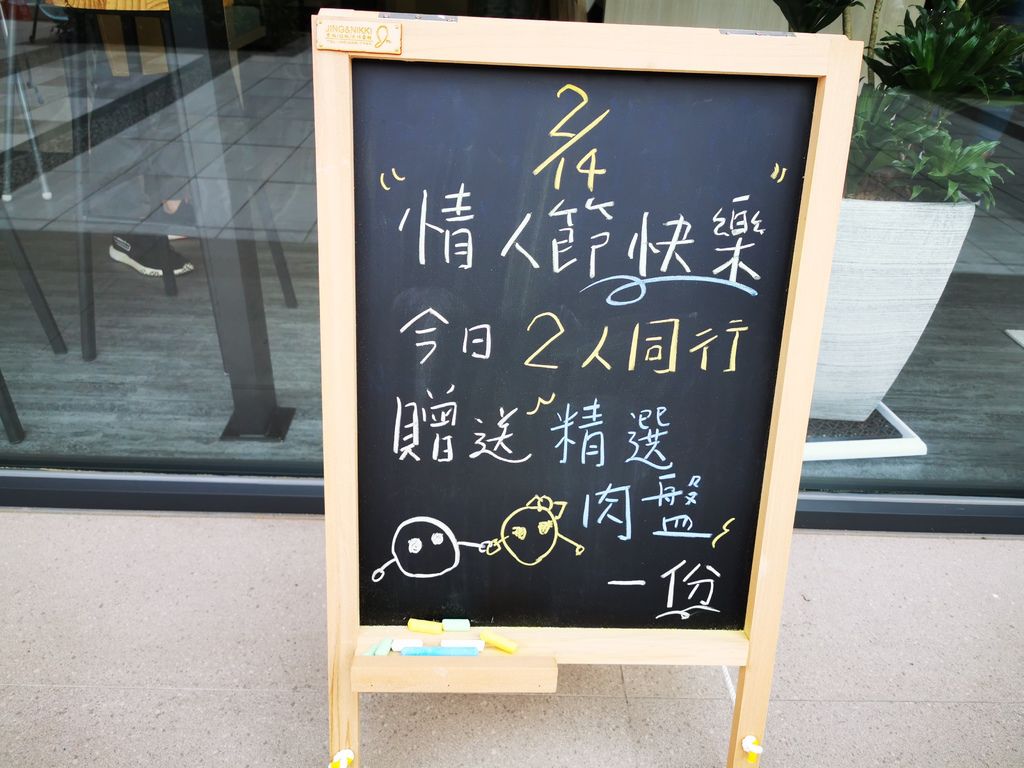 JING&NIKKI
2/14
情人節快樂
今日2人同行
贈送精選
肉盤
一份